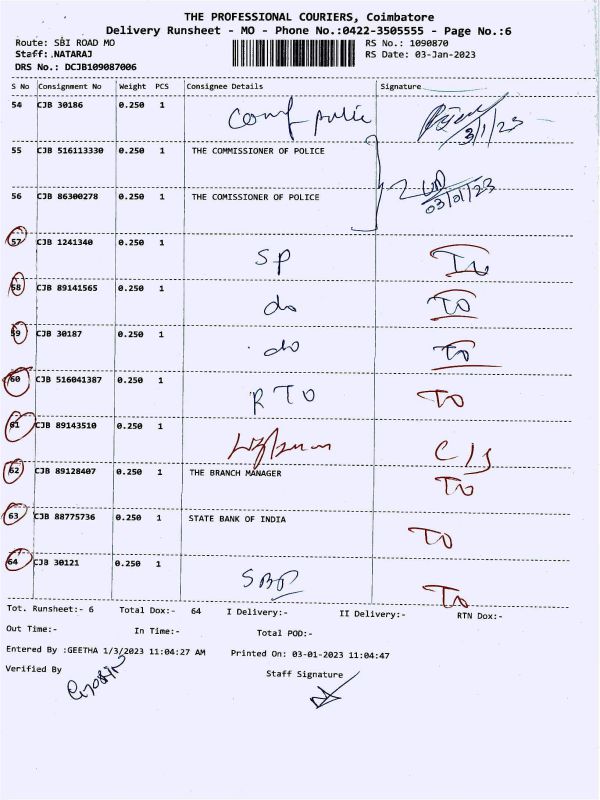 THE PROFESSIONAL COURIERS, Coimbatore
Delivery Runsheet - MO - Phone No.:0422-3505555 - Page No.:6
Route: SBI ROAD MO RS No.: 1090870
Staff:.NATARAJ RS Date: 03-Jan-2023
DRS No.: DCJB109087006
S No Consignment No Weight PCS Consignee Details Signature
54 CJB 30186 0.250 1 3/1/23
55 CJB 516113330 0.250 1 THE COMMISSIONER OF POLICE
56 CJB 86300278 0.250 1 THE COMISSIONER OF POLICE 03/01/23
57 CJB 1241340 0.250 1 SP To
58 CJB 89141565 0.250 1 do TO
59 CJB 30187 0.250 1 do To
60 CJB 516041387 0.250 1 RTO To
61 CJB 89143510 0.250 1 C/s
62 CJB 89128407 0.250 1 THE BRANCH MANAGER To
63 CJB 88775736 0.250 1 STATE BANK OF INDIA To
64 CJB 30121 0.250 1 To
Tot. Runsheet:- 6 Total Dox:- 64 I Delivery:- II Delivery:- RTN Dox:-
Out Time:- In Time:- Total POD:-
Entered By :GEETHA 1/3/2023 11:04:27 AM Printed On: 03-01-2023 11:04:47
Verified By Staff Signature